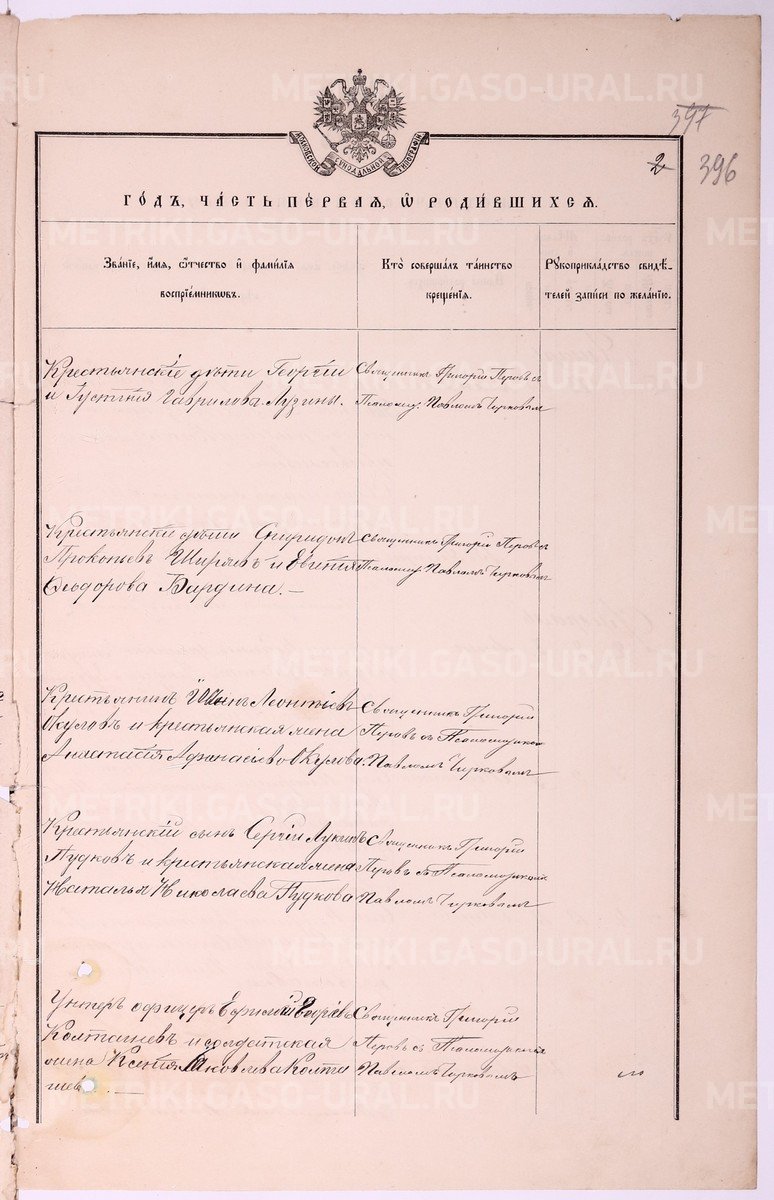 METRIKI.GASO-URAL.RU
МОСКОВСКОЙ СѴНОДАЛЬНОЙ ТИПОГРАФІИ
397
2 396
ГО́ДЪ, ЧА́СТЬ ПЕ́РВАЯ, Ѡ РОДИ́ВШИХСѦ.
Зва́нїе, и́мѧ, ѻ҆́тчество и҆ фами́лїѧ
воспрїе́мникѡвъ.
Кто̀ соверша́лъ та́инство
креще́нїѧ.
Рꙋкоприкла́дство свидѣ́-
телей за́писи по жела́нїю.
Крестьянскіе дѣти Георгій
и Іустинія Гаврилова Лузины.
Священникъ Григорій Перовъ съ
Псаломщ. Павломъ Чирковымъ
Крестьянскіи дѣти Спиридонъ
Прокопьевъ Ширяевъ и Евгенія
Ѳеодорова Бардина. —
Священникъ Григорій Перовъ съ
Псаломщ. Павломъ Чирковымъ
Крестьянинъ Леонтіевъ
Окуловъ и крестьянская жена
Анастасія Афанасьева Окулова.
Священникъ Григорій
Перовъ съ Псаломщикомъ
Павломъ Чирковымъ
Крестьянскій сынъ Сергій Лукинъ
Пудковъ и крестьянская жена
Наталья Николаева Пудкова
Священникъ Григорій
Перовъ съ Псаломщикомъ
Павломъ Чирковымъ
Унтеръ офицеръ
Колташевъ и солдатская
жена Ксенія Яковлева Колта
шев —
Священникъ Григорій
Перовъ съ Псаломщикомъ
Павломъ Чирковымъ